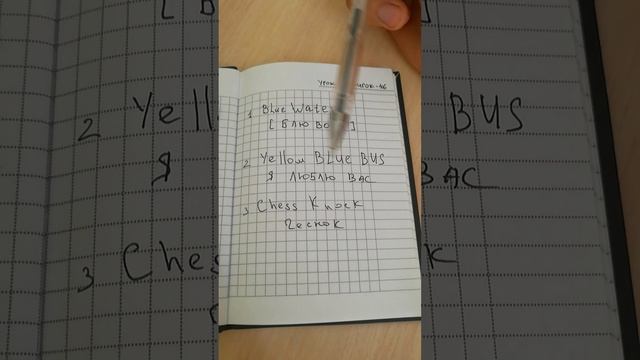 Урок
1 Blue Wate
[ Блю Во ]
2 Yellow BLUE BUS
Я люблю ВАС
3 Chess Knock
Чеснок